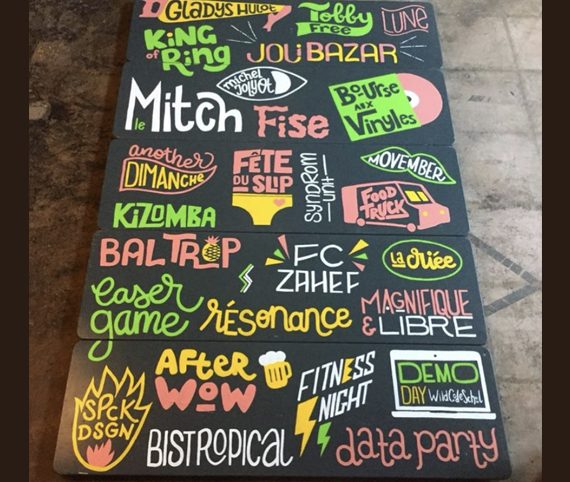 GLADYS HULOT
Tobby
Free
LUNE
KiNG
of Ring
JOLi BAZAR
michel
jolyot
le Mitch
Fise
BOURSE
AUX
Vinyles
another
DIMANCHE
FÊTE
DU SLiP
SYNDROM
UNIT
MOVEMBER
FOOD
TRUCK
KiZOMBA
BAL TROP
FC
ZAHEF
la criée
laser
game
résonance
MAGNiFIQUE
& LIBRE
SPCK
DSGN
AFTER
WOW
FITNESS
NIGHT
DEMO
DAY WildCodeSchol
BISTROPICAL
data party